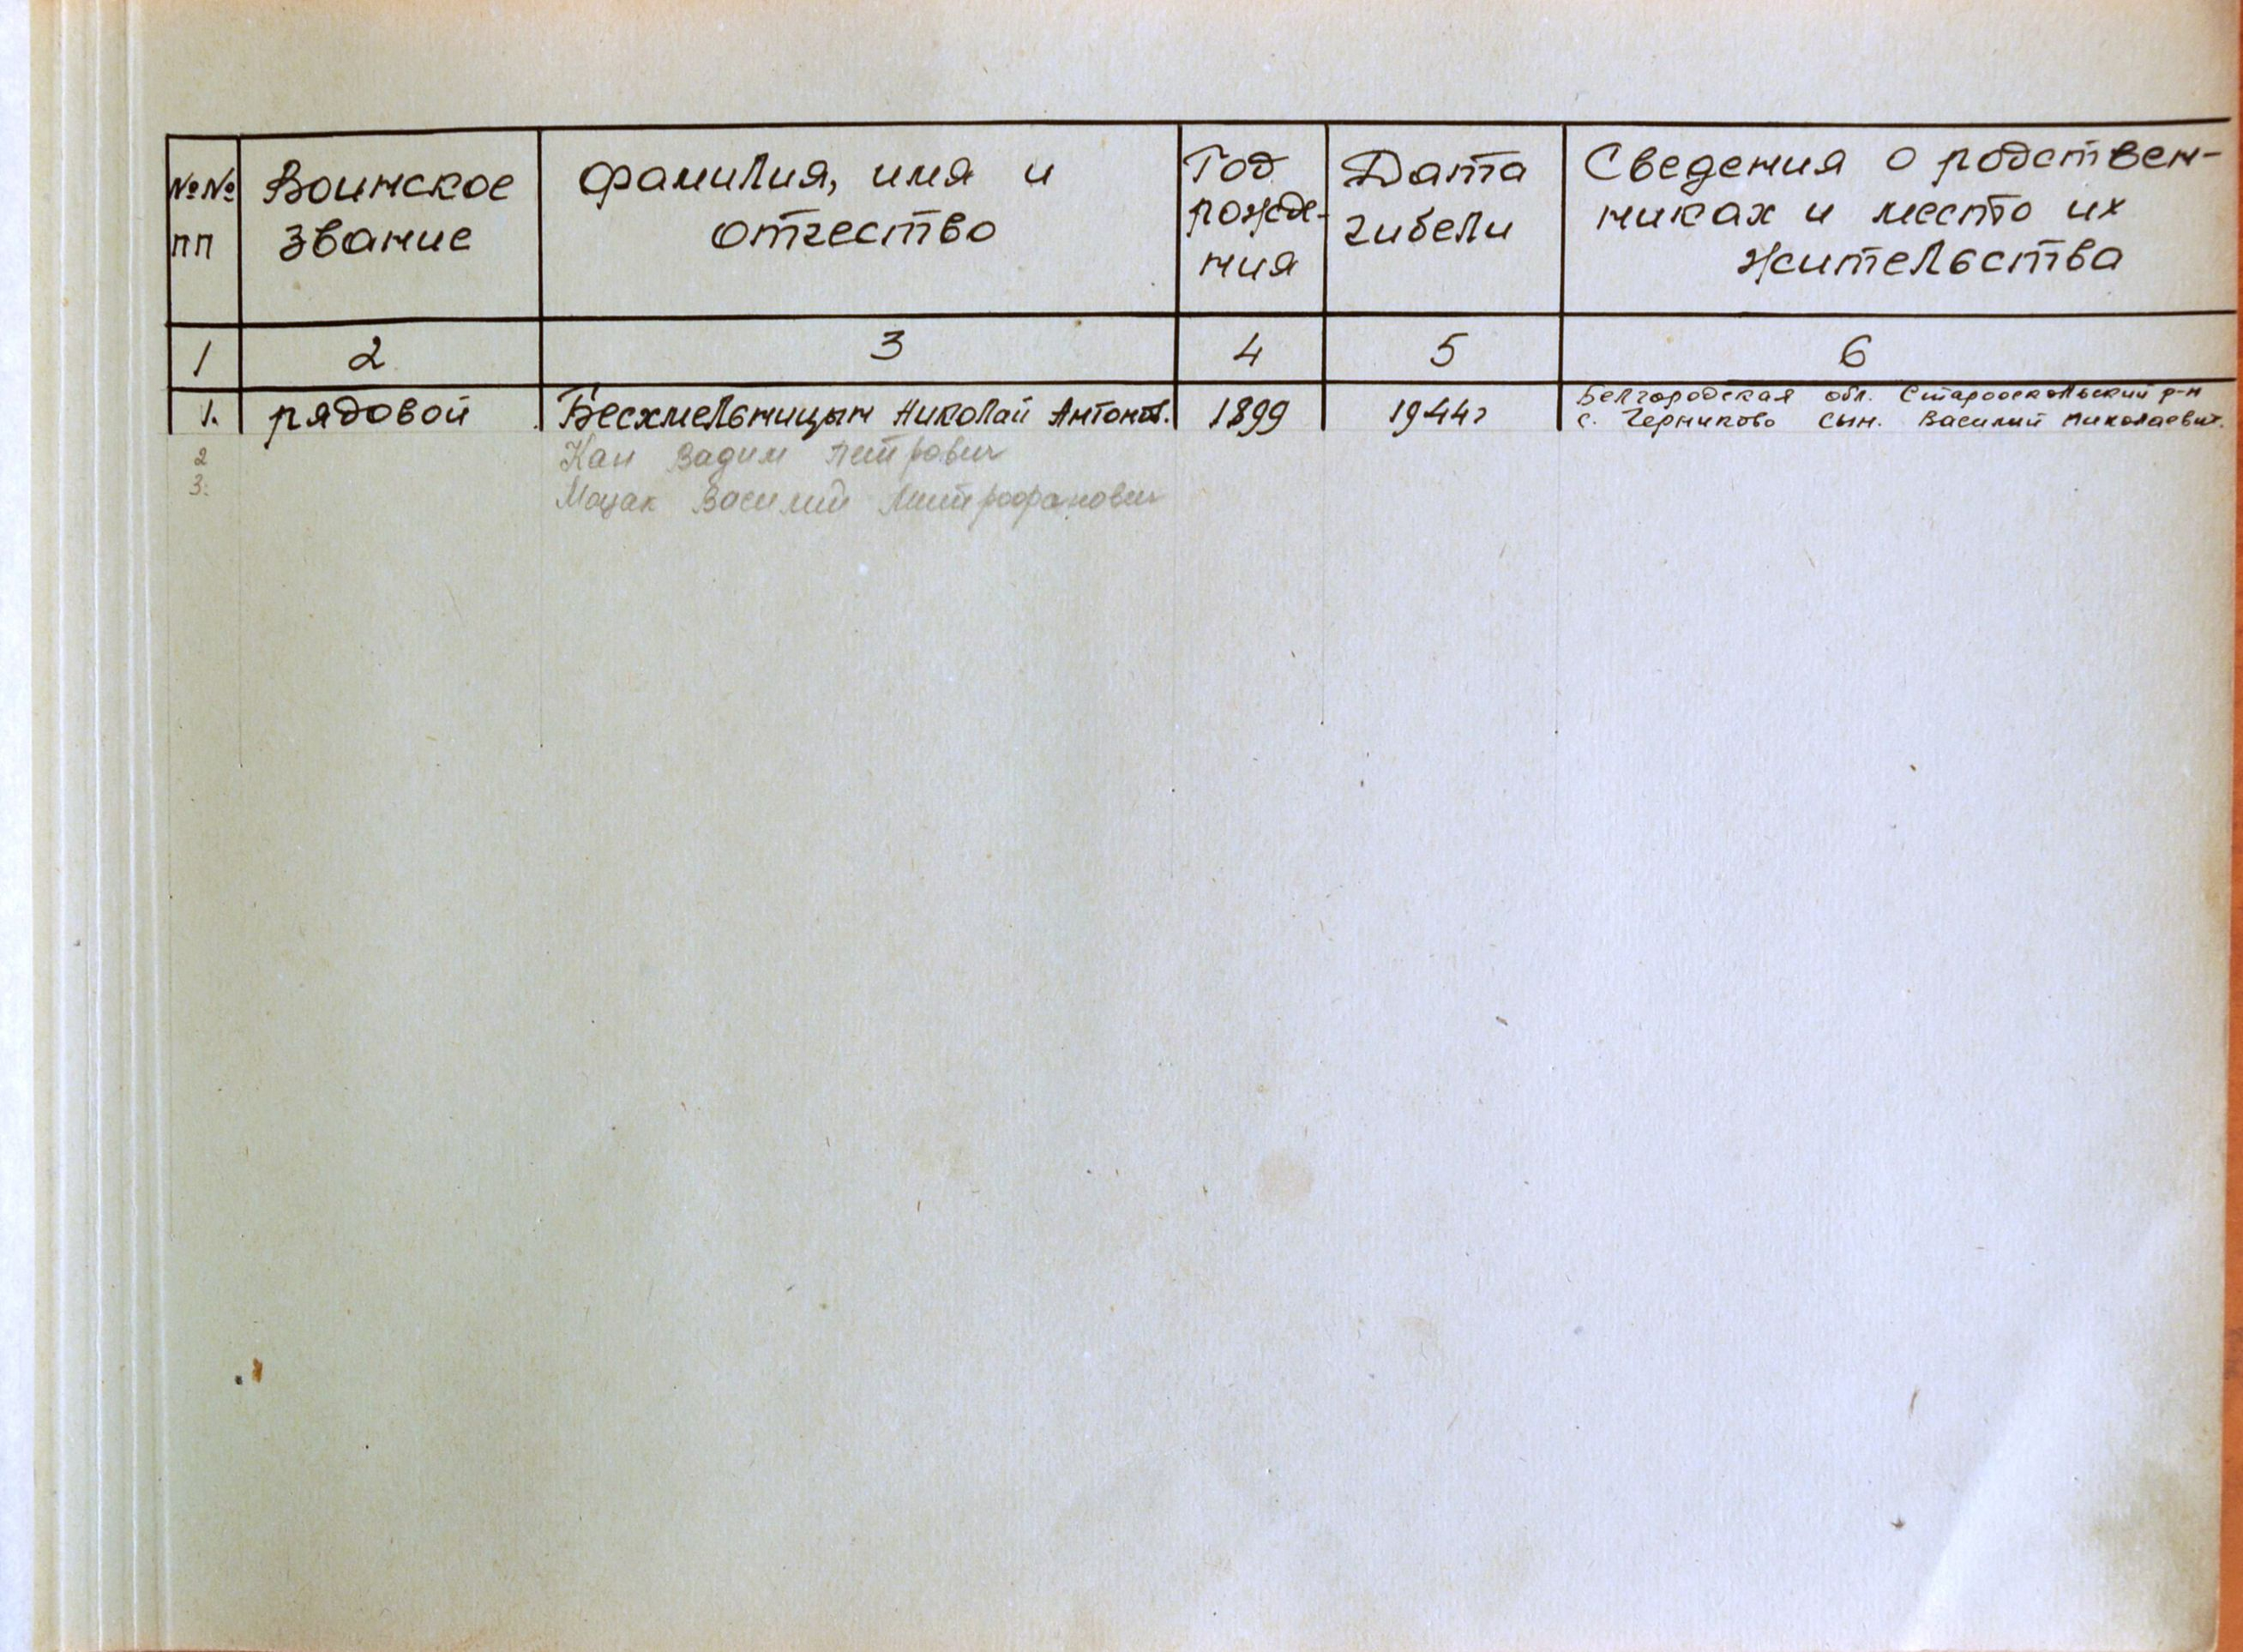 №№ пп Воинское звание Фамилия, имя и отчество Год рожде- ния Дата гибели Сведения о родствен- никах и место их жительства
1 2 3 4 5 6
1. рядовой Бесхмельницын Николай Антонов. 1899 1944г Белгородская обл. Старооскольский р-н
с. Черниково сын. Василий Николаевич.
2 Кан Вадим Петрович
3. Моцак Василий Митрофанович